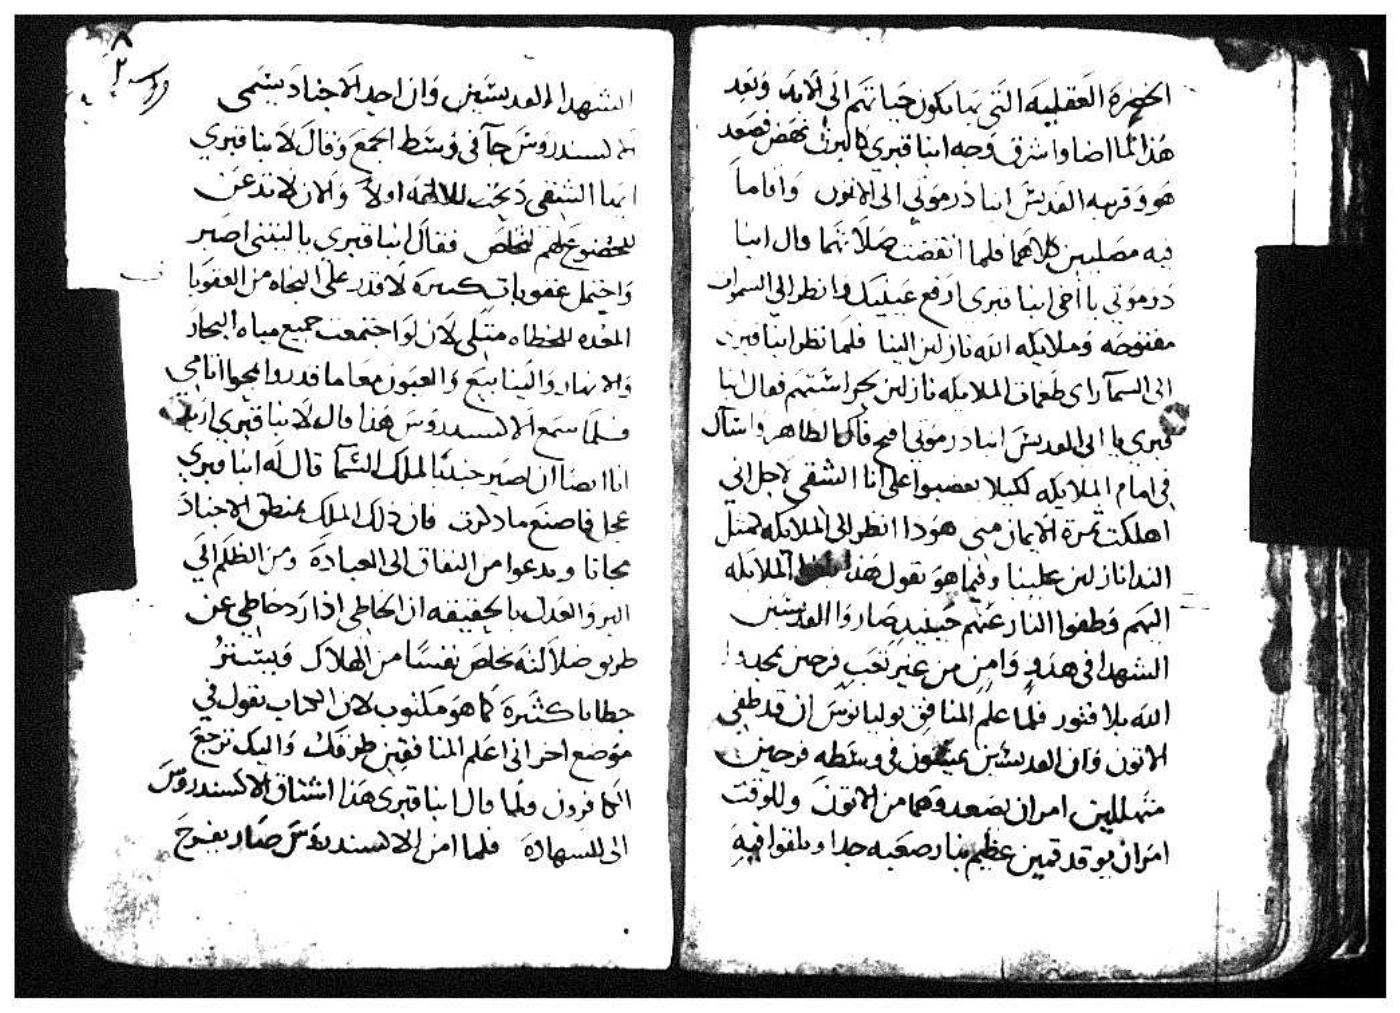 الخضرة العقليه التي بها يكون حياتهم الى الابد وبعد
هذا لما اضا واشرق وجه انبا قبري كالبرق نهض وصعد
هو وقريبه القديس انبا درموني الى الاتون واقاما
فيه مصليين كلاهما فلما انقضت صلاتهما قال انبا
درموني يا اخي انبا قبري ارفع عينيك وانظر الى السموات
مفتوحه وملايكه الله نازلين الينا فلما نظر انبا قبري
الى السما راى طغمات الملايكه نازلين فقال انبا
قبري يا ابي القديس انبا درموني افتح فاك الطاهر واسال
في امام الملايكه لكيلا يغضبوا علي انا الشقي لاجل اني
اهلكت ثمرة الايمان مني هودا انظر الى الملايكه
الندا نازلين علينا وفيما هو يقول هذا الملايكه
اليهم وطفوا النار عنهم حينيد صاروا القديسين
الشهدا في هدو وامن من غير تعب فرحين يمجدوا
الله بلا فتور فلما علم المنافق يوليانوس ان قد طفي
الاتون وان القديسين يمشون في وسطه فرحين
متهللين امر ان يصعدوهما من الاتون وللوقت
امر ان يوقد قمين عظيم بنار صعبه جدا ويلقوا فيه
الشهدا القديسين وان احد الاجناد يسمى
الاكسندروس جا في وسط الجمع وقال لانبا قبري
ايها الشقي ذبحت للالهه اولا والان لا تدعن
للخضوع لهم لتخلص فقال انبا قبري يا ليتني اصير
واحتمل عقوبات كثيره لاقدر على النجاه من العقوبا
المعده للخطاه مثلي لان لو اجتمعت جميع مياه البحار
والانهار والينابيع والعيون معا ما قدروا يمحوا اثامي
فلما سمع الاكسندروس هذا قال لانبا قبري اريد
انا ايضا ان اصير جنديا لملك السما قال له انبا قبري
عجل فاصنع ما ذكرت فان ذلك الملك يمنطق الاجناد
مجانا ويدعوا من النفاق الى العبادة ومن الظلم الي
البر والعدل بالحقيقه ان الخاطي اذا رد خاطي عن
طريق ضلالته يخلص نفسا من الهلاك ويستتر
خطايا كثيرة كما هو مكتوب لان الكتاب يقول في
موضع اخر اني اعلم المنافقين طرقك واليك ترجع
الكافرون ولما قال انبا قبري هذا اشتاق الاكسندروس
الى الشهادة فلما امن الاكسندروس صار بفرح